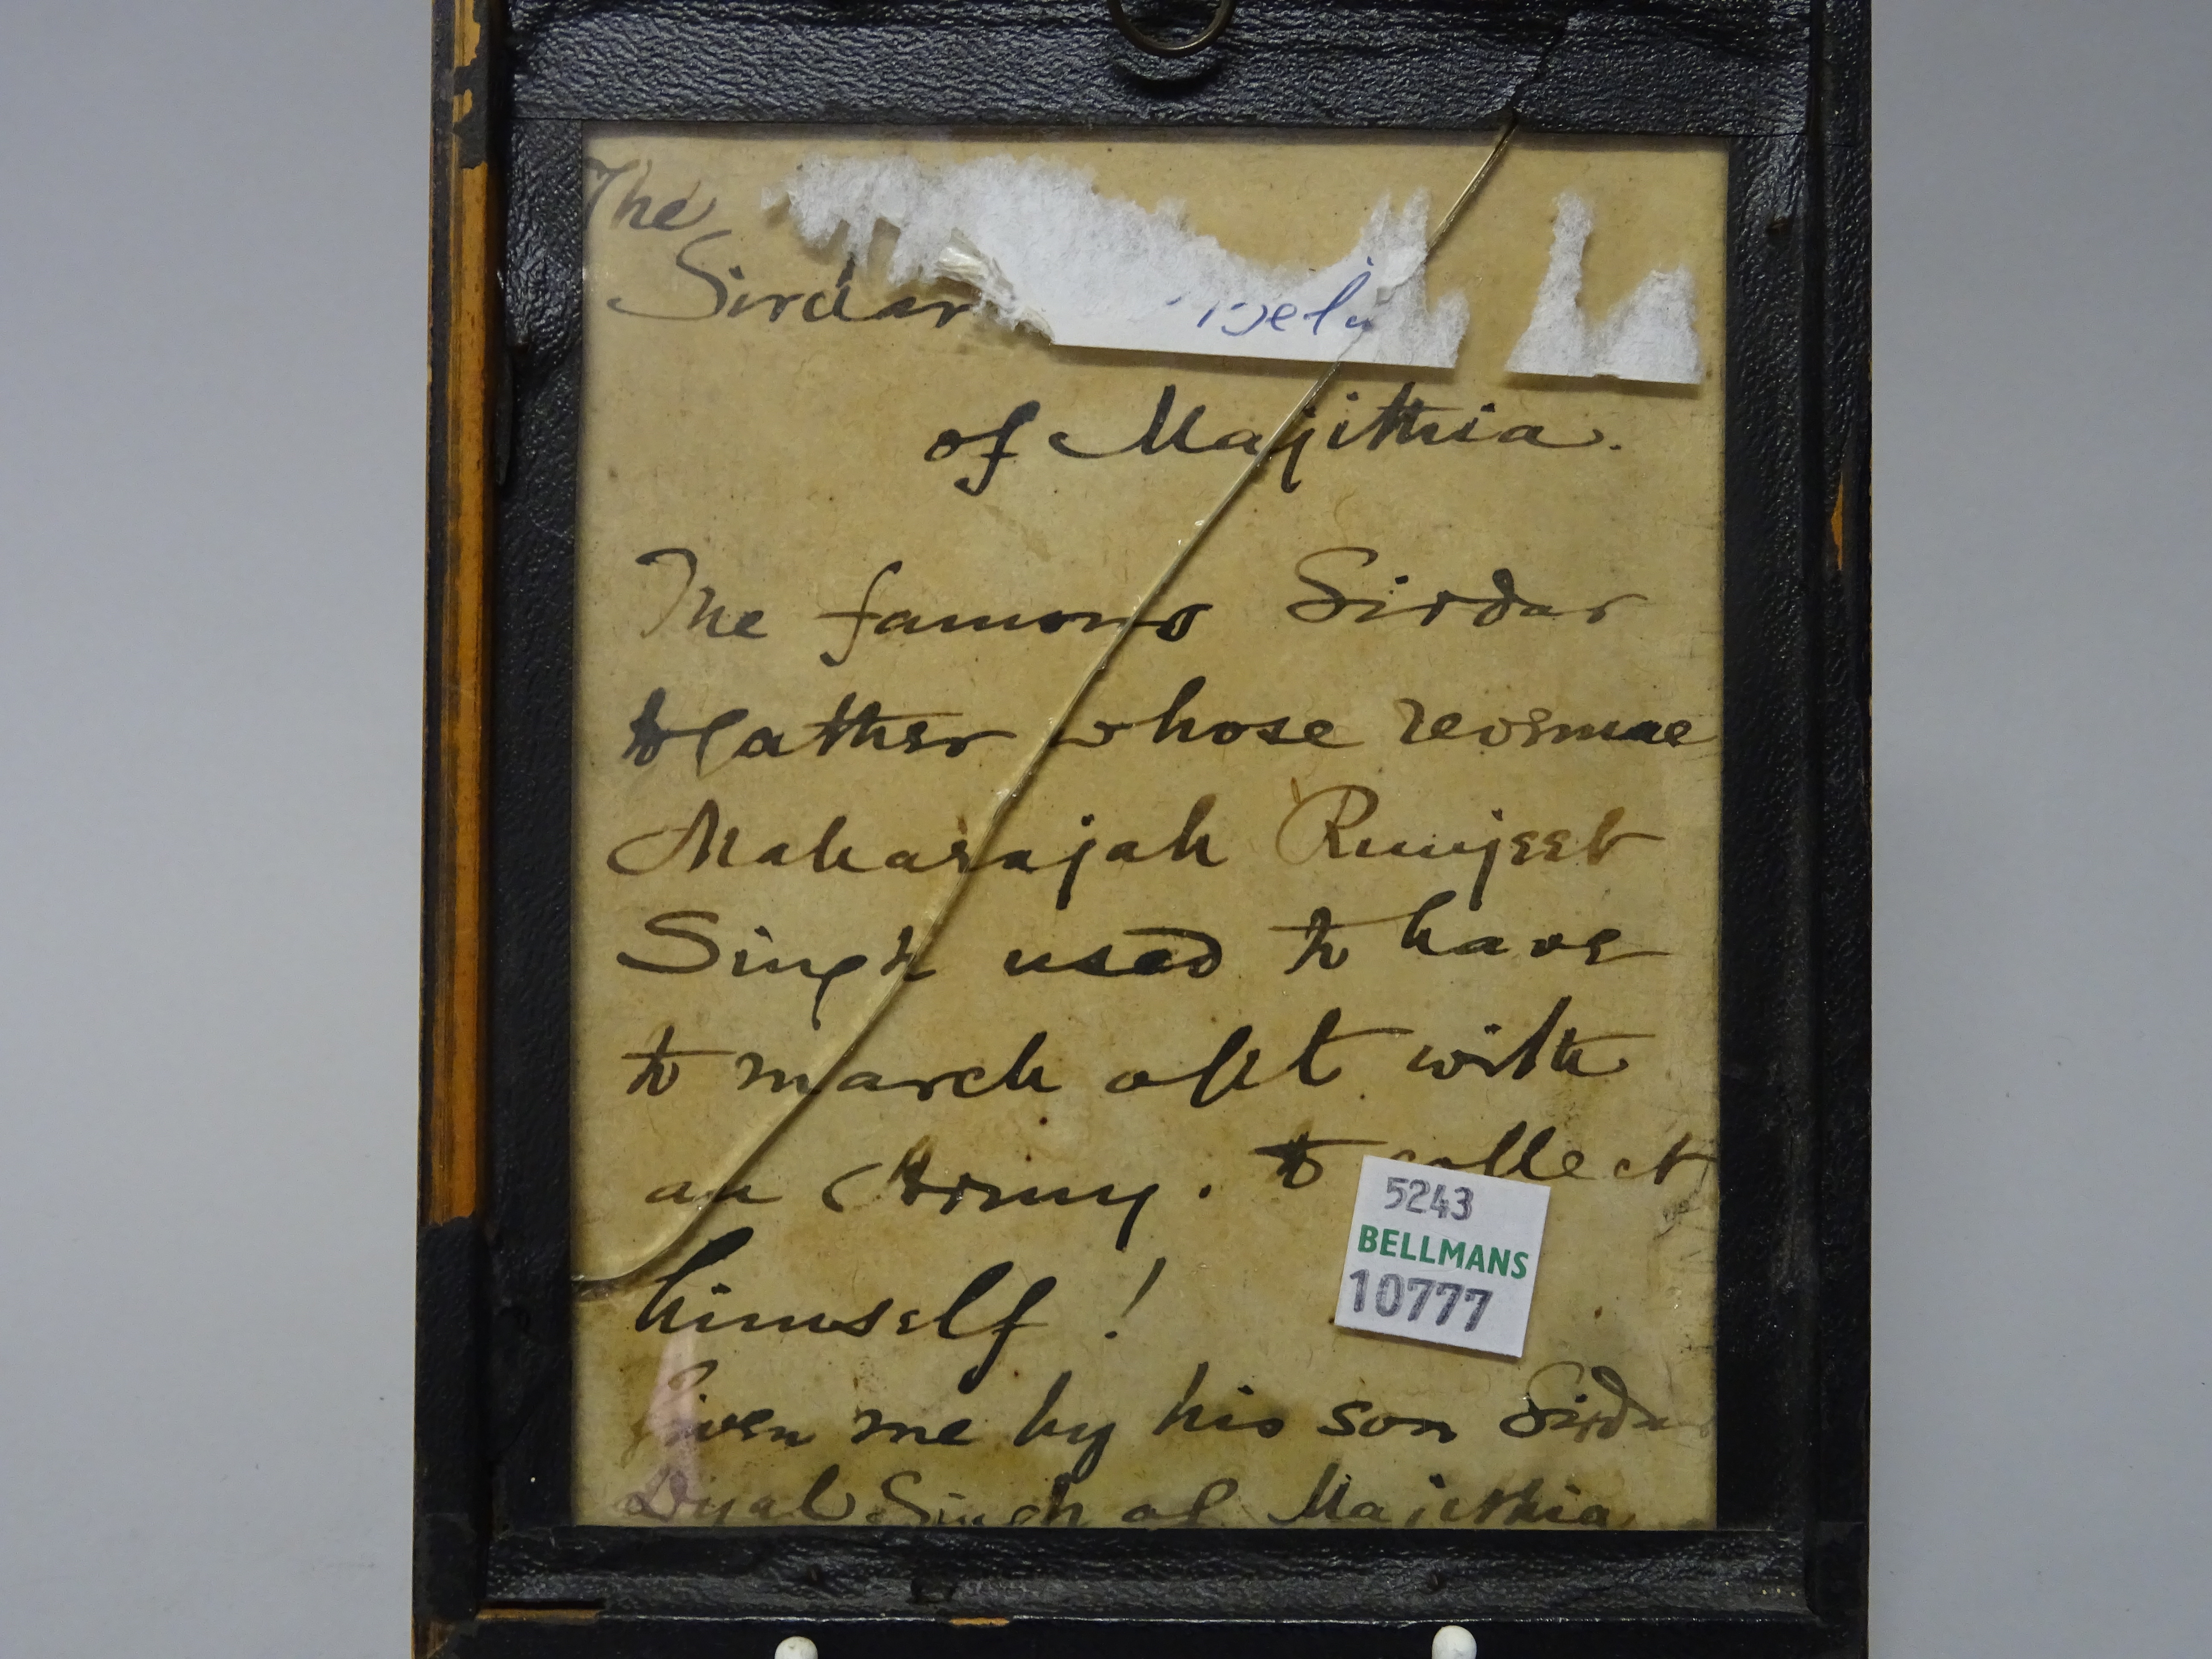 The
Sirdar
of Majithia.
The famous Sirdar
to collect
father whose revenue
Maharajah Runjeet
Singh used to have
to march off with
an Army. to collect
himself!
5243
BELLMANS
10777
Given me by his son Sirdar
Dyal Singh of Majithia